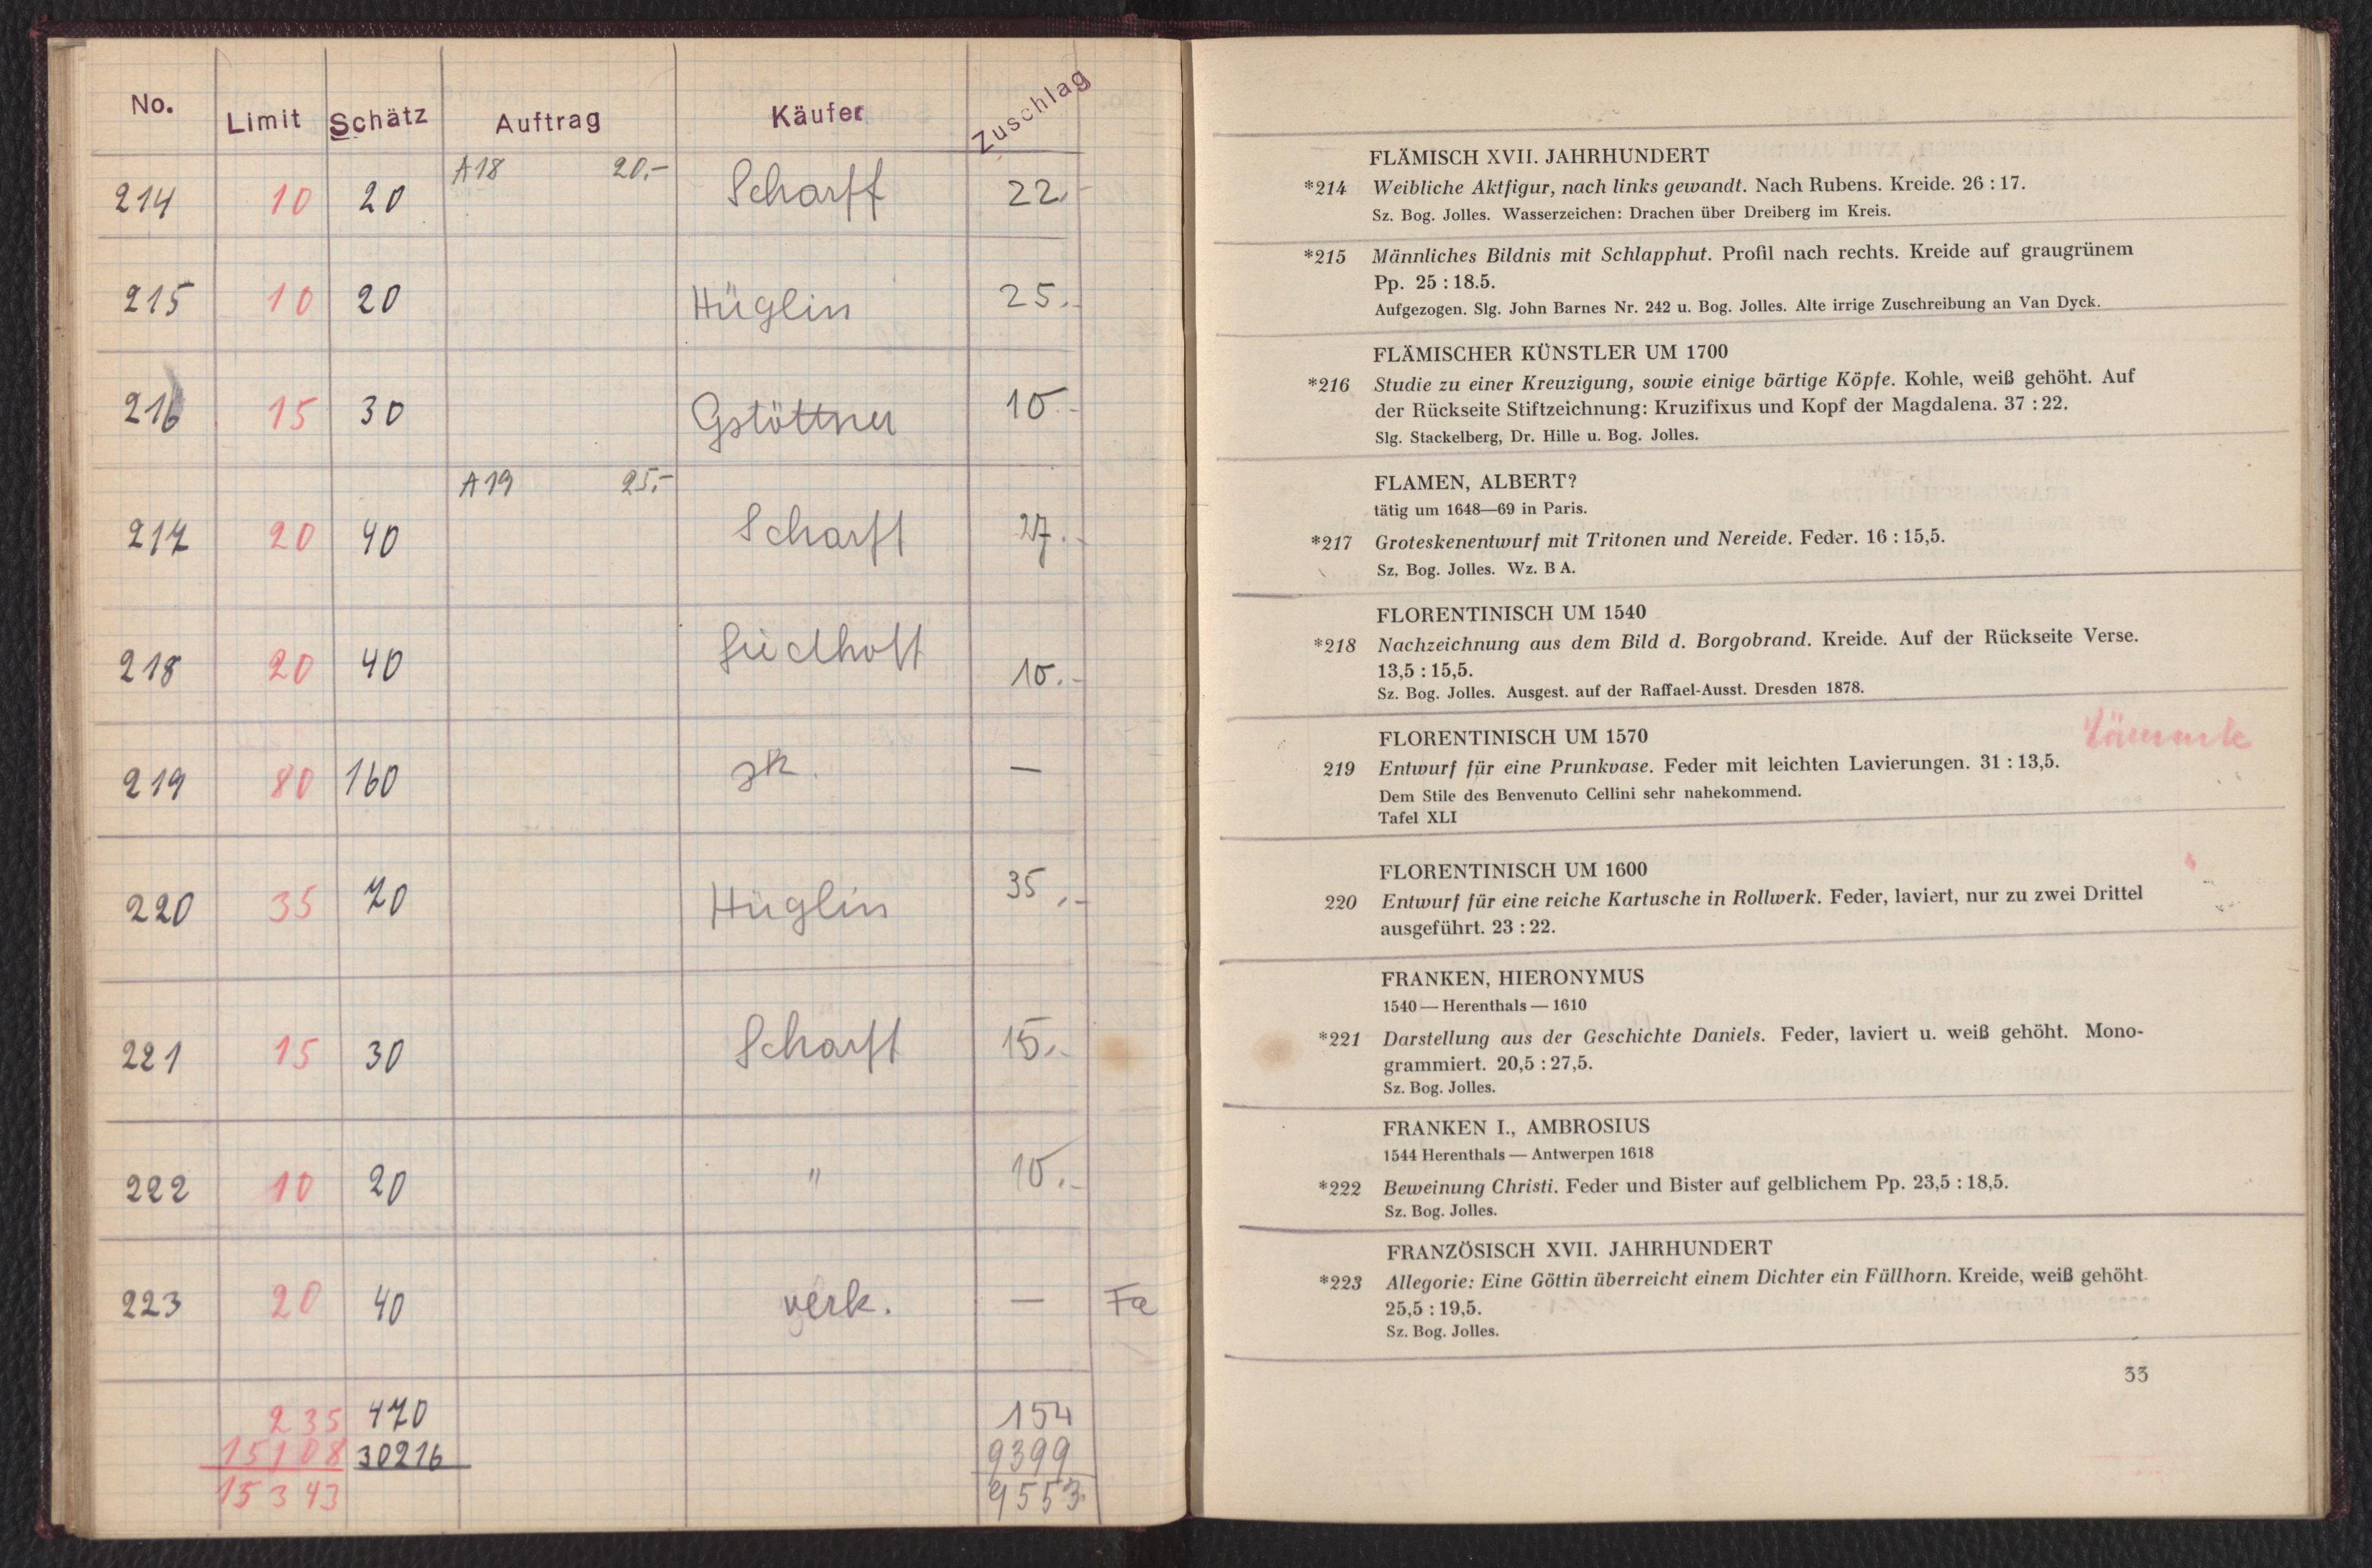 No. Limit Schätz Auftrag Käufer Zuschlag
A18 20.-
214 10 20 Scharff 22.-
215 10 20 Hüglin 25.-
216 15 30 Gstöttner 10.-
A19 25.-
217 20 40 Scharff 27.-
218 20 40 10.-
219 80 160 zk. —
220 35 70 Hüglin 35.-
221 15 30 Scharff 15.-
222 10 20 " 10.-
223 20 40 verk. — Fa
235 470 154
15108 30216 9399
15343 9553
FLÄMISCH XVII. JAHRHUNDERT
*214 Weibliche Aktfigur, nach links gewandt. Nach Rubens. Kreide. 26 : 17.
Sz. Bog. Jolles. Wasserzeichen: Drachen über Dreiberg im Kreis.
*215 Männliches Bildnis mit Schlapphut. Profil nach rechts. Kreide auf graugrünem
Pp. 25 : 18.5.
Aufgezogen. Slg. John Barnes Nr. 242 u. Bog. Jolles. Alte irrige Zuschreibung an Van Dyck.
FLÄMISCHER KÜNSTLER UM 1700
*216 Studie zu einer Kreuzigung, sowie einige bärtige Köpfe. Kohle, weiß gehöht. Auf
der Rückseite Stiftzeichnung: Kruzifixus und Kopf der Magdalena. 37 : 22.
Slg. Stackelberg, Dr. Hille u. Bog. Jolles.
FLAMEN, ALBERT?
tätig um 1648—69 in Paris.
*217 Groteskenentwurf mit Tritonen und Nereide. Feder. 16 : 15,5.
Sz. Bog. Jolles. Wz. B A.
FLORENTINISCH UM 1540
*218 Nachzeichnung aus dem Bild d. Borgobrand. Kreide. Auf der Rückseite Verse.
13,5 : 15,5.
Sz. Bog. Jolles. Ausgest. auf der Raffael-Ausst. Dresden 1878.
FLORENTINISCH UM 1570
219 Entwurf für eine Prunkvase. Feder mit leichten Lavierungen. 31 : 13,5.
Dem Stile des Benvenuto Cellini sehr nahekommend.
Tafel XLI
FLORENTINISCH UM 1600
220 Entwurf für eine reiche Kartusche in Rollwerk. Feder, laviert, nur zu zwei Drittel
ausgeführt. 23 : 22.
FRANKEN, HIERONYMUS
1540 — Herenthals — 1610
*221 Darstellung aus der Geschichte Daniels. Feder, laviert u. weiß gehöht. Mono-
grammiert. 20,5 : 27,5.
Sz. Bog. Jolles.
FRANKEN I., AMBROSIUS
1544 Herenthals — Antwerpen 1618
*222 Beweinung Christi. Feder und Bister auf gelblichem Pp. 23,5 : 18,5.
Sz. Bog. Jolles.
FRANZÖSISCH XVII. JAHRHUNDERT
*223 Allegorie: Eine Göttin überreicht einem Dichter ein Füllhorn. Kreide, weiß gehöht.
25,5 : 19,5.
Sz. Bog. Jolles.
33